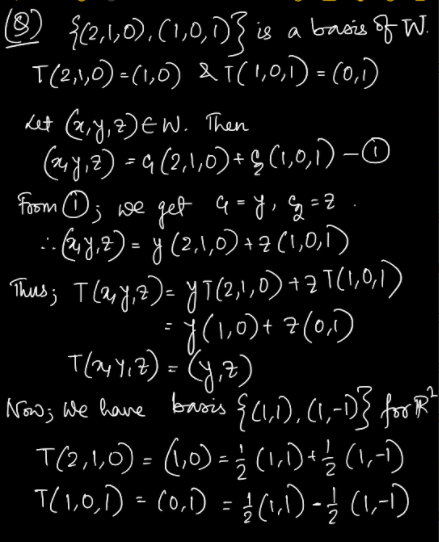 (8) {(2,1,0), (1,0,1)} is a basis of W.
T(2,1,0) = (1,0) & T(1,0,1) = (0,1)
Let (x,y,z) ∈ W. Then
(x,y,z) = c₁(2,1,0) + c₂(1,0,1) — ①
From ①; we get c₁ = y, c₂ = z.
∴ (x,y,z) = y(2,1,0) + z(1,0,1)
Thus; T(x,y,z) = yT(2,1,0) + zT(1,0,1)
= y(1,0) + z(0,1)
T(x,y,z) = (y,z)
Now; We have basis {(1,1), (1,-1)} for ℝ²
T(2,1,0) = (1,0) = 1/2 (1,1) + 1/2 (1,-1)
T(1,0,1) = (0,1) = 1/2 (1,1) - 1/2 (1,-1)